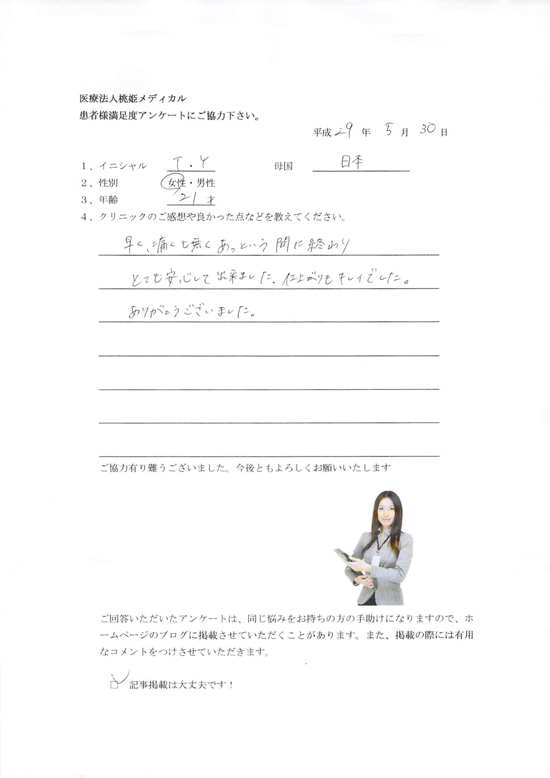 医療法人桃姫メディカル
患者様満足度アンケートにご協力下さい。
平成 29 年 5 月 30 日
1、イニシャル T.Y 母国 日本
2、性別 女性・男性
3、年齢 21才
4、クリニックのご感想や良かった点などを教えてください。
早く、痛くも無くあっという間に終わり
とても安心して出来ました。仕上がりもキレイでした。
ありがとうございました。
ご協力有り難うございました。今後ともよろしくお願いいたします
ご回答いただいたアンケートは、同じ悩みをお持ちの方の手助けになりますので、ホ
ームページのブログに掲載させていただくことがあります。また、掲載の際には有用
なコメントをつけさせていただきます。
☑ 記事掲載は大丈夫です！